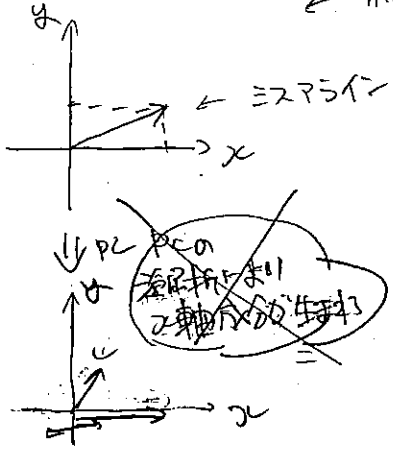 y
← ミスアライン
x
⇓ PC PCの
複屈折により
x軸成分が生まれ
y
x